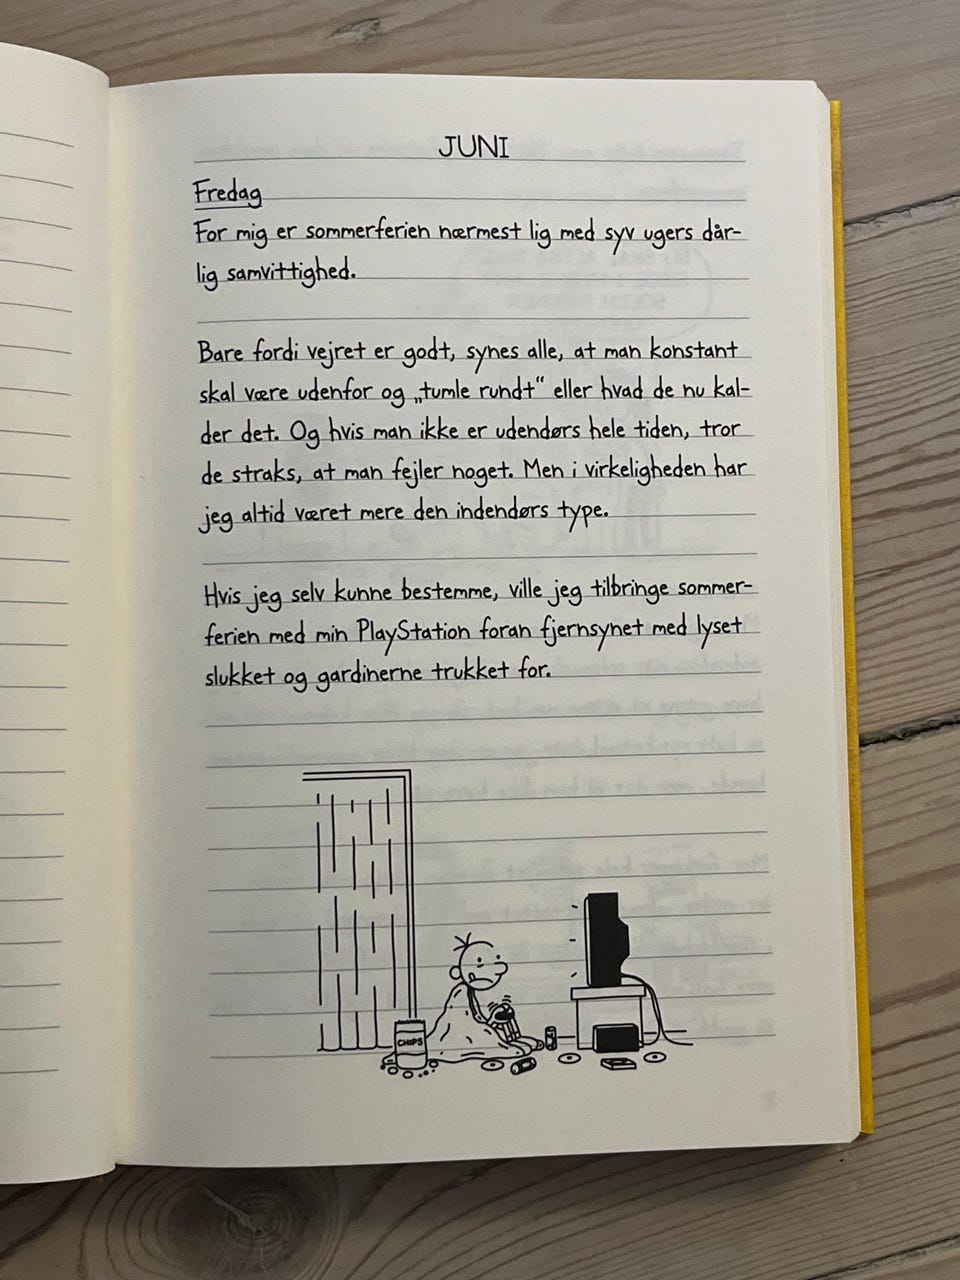 JUNI
Fredag
For mig er sommerferien nærmest lig med syv ugers dår-
lig samvittighed.
Bare fordi vejret er godt, synes alle, at man konstant
skal være udenfor og „tumle rundt“ eller hvad de nu kal-
der det. Og hvis man ikke er udendørs hele tiden, tror
de straks, at man fejler noget. Men i virkeligheden har
jeg altid været mere den indendørs type.
Hvis jeg selv kunne bestemme, ville jeg tilbringe sommer-
ferien med min PlayStation foran fjernsynet med lyset
slukket og gardinerne trukket for.
CHIPS